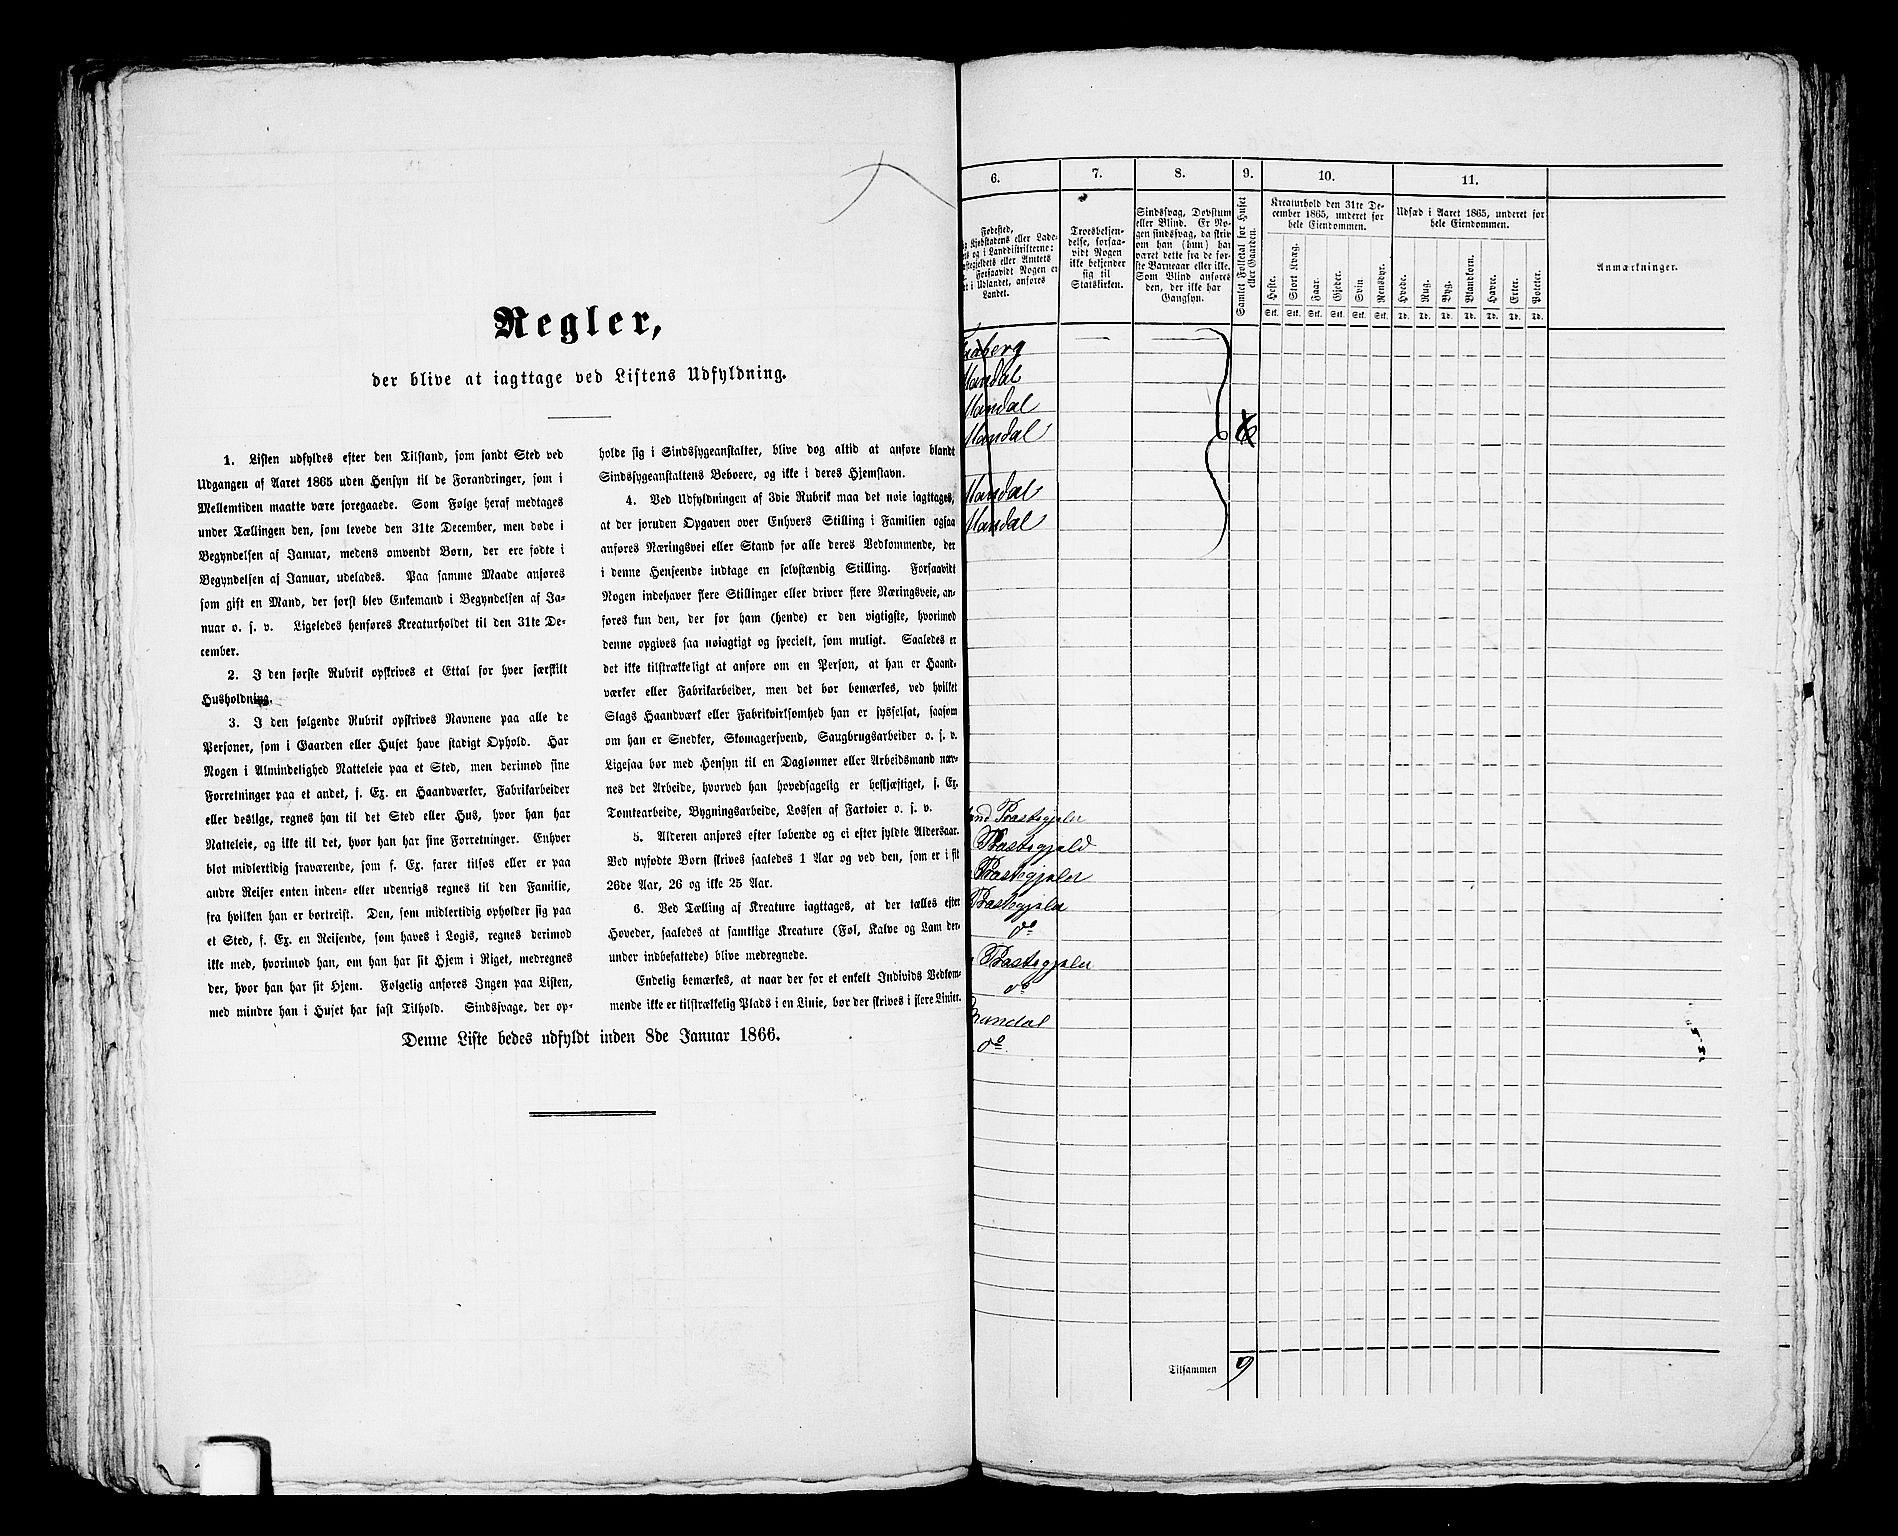 Regler,
der blive at iagttage ved Listens Udfyldning.
1. Listen udfyldes efter den Tilstand, som fandt Sted ved
Udgangen af Aaret 1865 uden Hensyn til de Forandringer, som i
Mellemtiden maatte være foregaaede. Som Følge heraf medtages
under Tællingen den, som levede den 31te December, men døde i
Begyndelsen af Januar, medens omvendt Børn, der ere fødte i
Begyndelsen af Januar, udelades. Paa samme Maade anføres
som gift en Mand, der først blev Enkemand i Begyndelsen af Ja-
nuar o. s. v. Ligeledes henføres Kreaturholdet til den 31te De-
cember.
2. I den første Rubrik opskrives et Ettal for hver særskilt
Husholdning.
3. I den følgende Rubrik opskrives Navnene paa alle de
Personer, som i Gaarden eller Huset have stadigt Ophold. Har
Nogen i Almindelighed Natteleie paa et Sted, men derimod sine
Forretninger paa et andet, f. Ex. en Haandværker, Fabrikarbeider
eller deslige, regnes han til det Sted eller Hus, hvor han har
Natteleie, og ikke til det, hvor han har sine Forretninger. Enhver
blot midlertidig fraværende, som f. Ex. farer tilsøs eller er paa
andre Reiser enten inden- eller udenrigs regnes til den Familie,
fra hvilken han er bortreist. Den, som midlertidig opholder sig paa
et Sted, f. Ex. en Reisende, som haves i Logis, regnes derimod
ikke med, hvorimod han, om han har sit Hjem i Riget, medregnes
der, hvor han har sit Hjem. Følgelig anføres Ingen paa Listen,
med mindre han i Huset har fast Tilhold. Sindssvage, der op-
holde sig i Sindssygeanstalter, blive dog altid at anføre blandt
Sindssygeanstaltens Beboere, og ikke i deres Hjemstavn.
4. Ved Udfyldningen af 3die Rubrik maa det nøie iagttages,
at der foruden Opgaven over Enhvers Stilling i Familien ogsaa
anføres Næringsvei eller Stand for alle deres Vedkommende, der
i denne Henseende indtage en selvstændig Stilling. Forsaavidt
Nogen indehaver flere Stillinger eller driver flere Næringsveie, an-
føres kun den, der for ham (hende) er den vigtigste, hvorimod
denne opgives saa nøiagtigt og specielt, som muligt. Saaledes er
det ikke tilstrækkeligt at anføre om en Person, at han er Haand-
værker eller Fabrikarbeider, men det bør bemærkes, ved hvilket
Slags Haandværk eller Fabrikvirksomhed han er sysselsat, saasom
om han er Snedker, Skomagersvend, Saugbrugsarbeider o. s. v.
Ligesaa bør med Hensyn til en Daglønner eller Arbeidsmand næv-
nes det Arbeide, hvorved han hovedsagelig er beskjæftiget, f. Ex.
Tomtearbeide, Bygningsarbeide, Lossen af Fartøier o. s. v.
5. Alderen anføres efter løbende og ei efter fyldte Aldersaar.
Ved nyfødte Børn skrives saaledes 1 Aar og ved den, som er i sit
26de Aar, 26 og ikke 25 Aar.
6. Ved Tælling af Kreature iagttages, at der tælles efter
Hoveder, saaledes at samtlige Kreature (Føl, Kalve og Lam der-
under indbefattede) blive medregnede.
Endelig bemærkes, at naar der for et enkelt Individs Vedkom-
mende ikke er tilstrækkelig Plads i en Linie, bør der skrives i flere Linier.
Denne Liste bedes udfyldt inden 8de Januar 1866.
6. 7. 8. 9. 10. 11.
Fødested,
Kjøbstadens eller Lade-
og i Landdistrikterne:
eller Amtets
Forsaavidt Nogen er
i Udlandet, anføres
Landet.
Troesbekjen-
delse, forsaa-
vidt Nogen
ikke bekjender
sig til
Statskirken.
Sindssvag, Døvstum
eller Blind. Er No-
gen sindssvag, da skriv
om han (hun) har
været dette fra de før-
ste Barneaar eller ikke.
Som Blind anføres
den, der ikke har
Gangsyn.
Samlet Folketal for Huset
eller Gaarden.
Kreaturhold den 31te De-
cember 1865, underet for
hele Eiendommen.
Heste. Stort Kvæg. Faar. Gjeder. Svin. Rensdyr.
Stk. Stk. Stk. Stk. Stk. Stk.
Udsæd i Aaret 1865, underet for
hele Eiendommen.
Hvede. Rug. Byg. Blandkorn. Havre. Erter. Poteter.
Td. Td. Td. Td. Td. Td. Td.
Anmærkninger.
Mandal
Mandal
Mandal
Mandal
Mandal
Præstegjeld
Præstegjeld
Præstegjeld
Præstegjeld
do
Præstegjeld
do
Mandal
do
Tilsammen 9